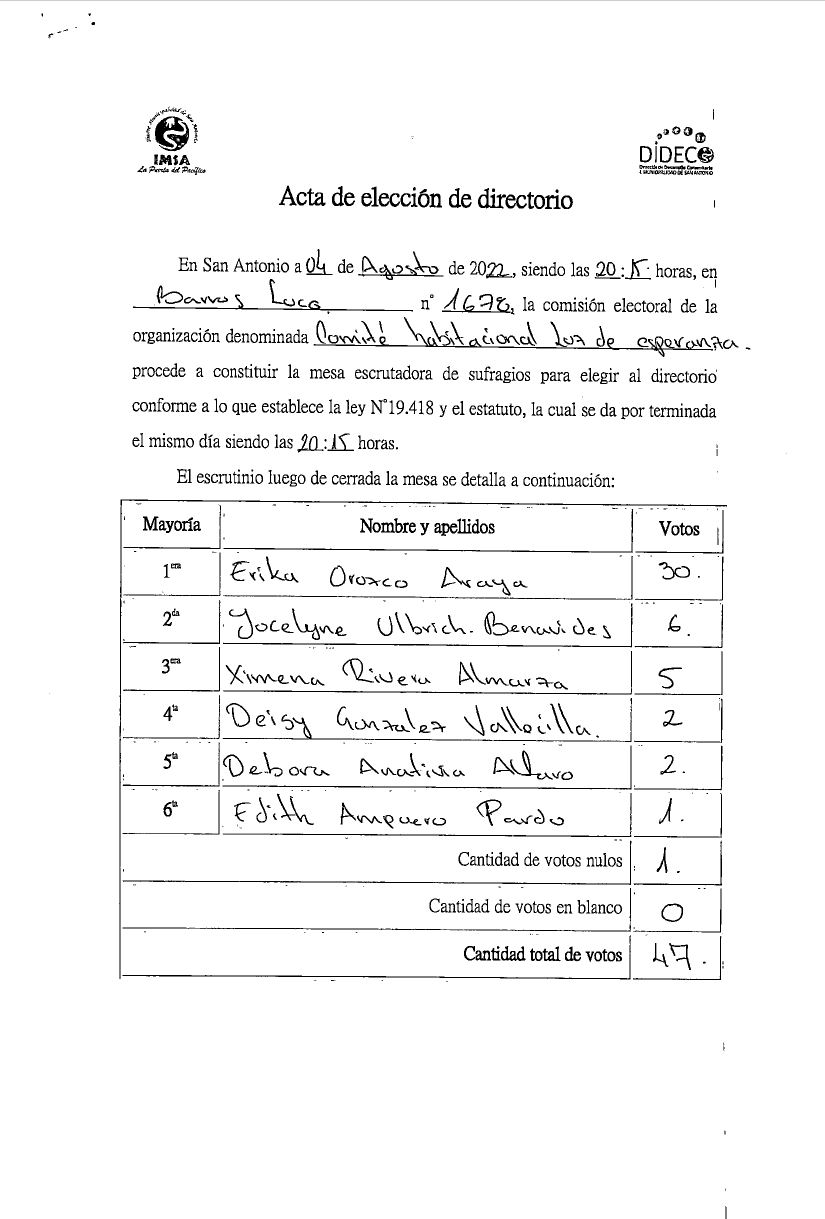 Ilustre Municipalidad de San Antonio
IMSA
La Puerta del Pacífico
DIDECO
Dirección de Desarrollo Comunitario
I. MUNICIPALIDAD DE SAN ANTONIO
Acta de elección de directorio
En San Antonio a 04 de Agosto de 2022, siendo las 20:15 horas, en
Barros Luco n° 1678, la comisión electoral de la
organización denominada Comité habitacional luz de esperanza.
procede a constituir la mesa escrutadora de sufragios para elegir al directorio
conforme a lo que establece la ley N°19.418 y el estatuto, la cual se da por terminada
el mismo día siendo las 20:15 horas.
El escrutinio luego de cerrada la mesa se detalla a continuación:
Mayoría Nombre y apellidos Votos
1era Erika Orozco Araya 30.
2da Jocelyne Ulbrich. Benavides 6.
3era Ximena Rivera Almarza 5
4ta Deisy Gonzalez 2
5ta Debora Alfaro 2.
6ta Edith Ampuero Pardo 1.
Cantidad de votos nulos 1.
Cantidad de votos en blanco 0
Cantidad total de votos 47.